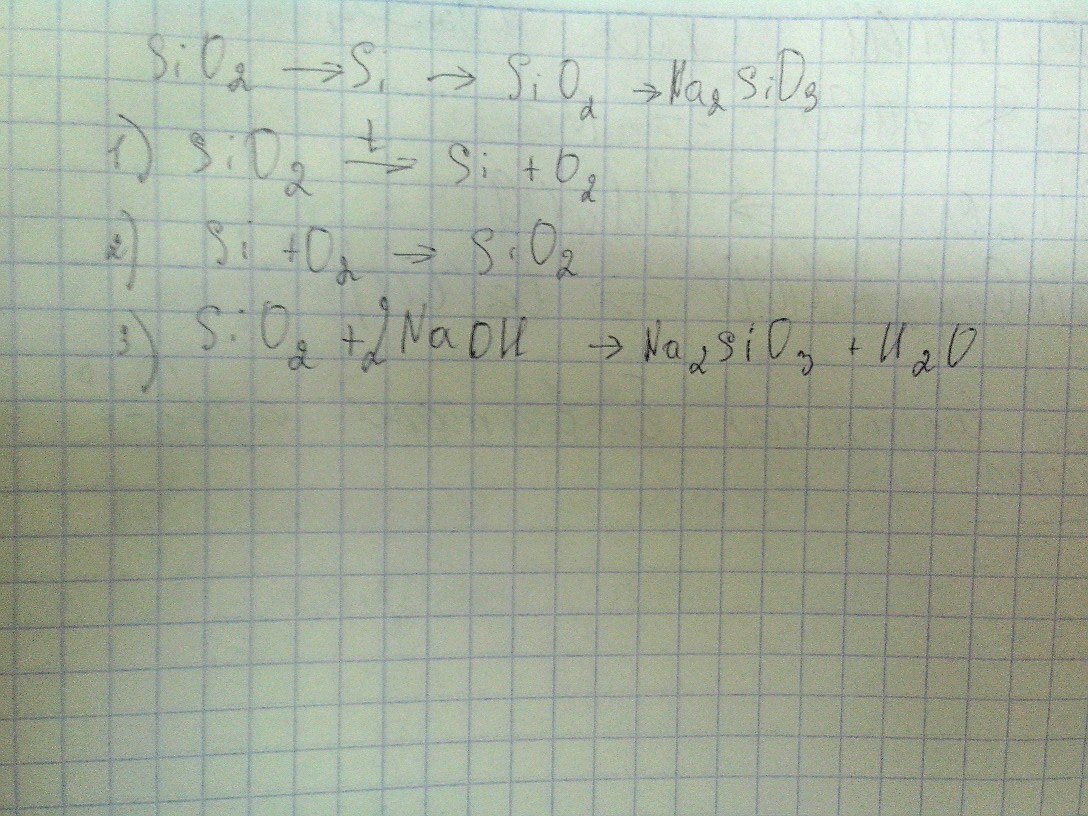 SiO₂ → Si → SiO₂ → Na₂SiO₃
1) SiO₂ →ᵗ Si + O₂
2) Si + O₂ → SiO₂
3) SiO₂ + 2NaOH → Na₂SiO₃ + H₂O